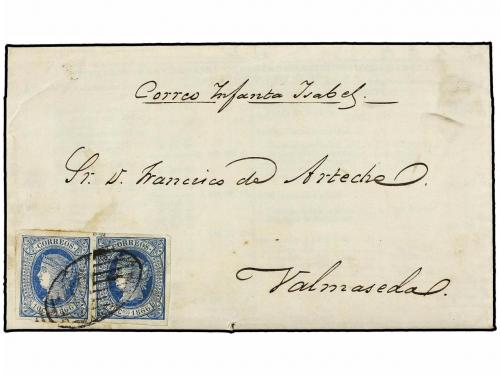 Correo Infanta Isabel.
Sr. D. Francisco de Arteche.
Valmaseda.
CORREOS CORREOS
1866